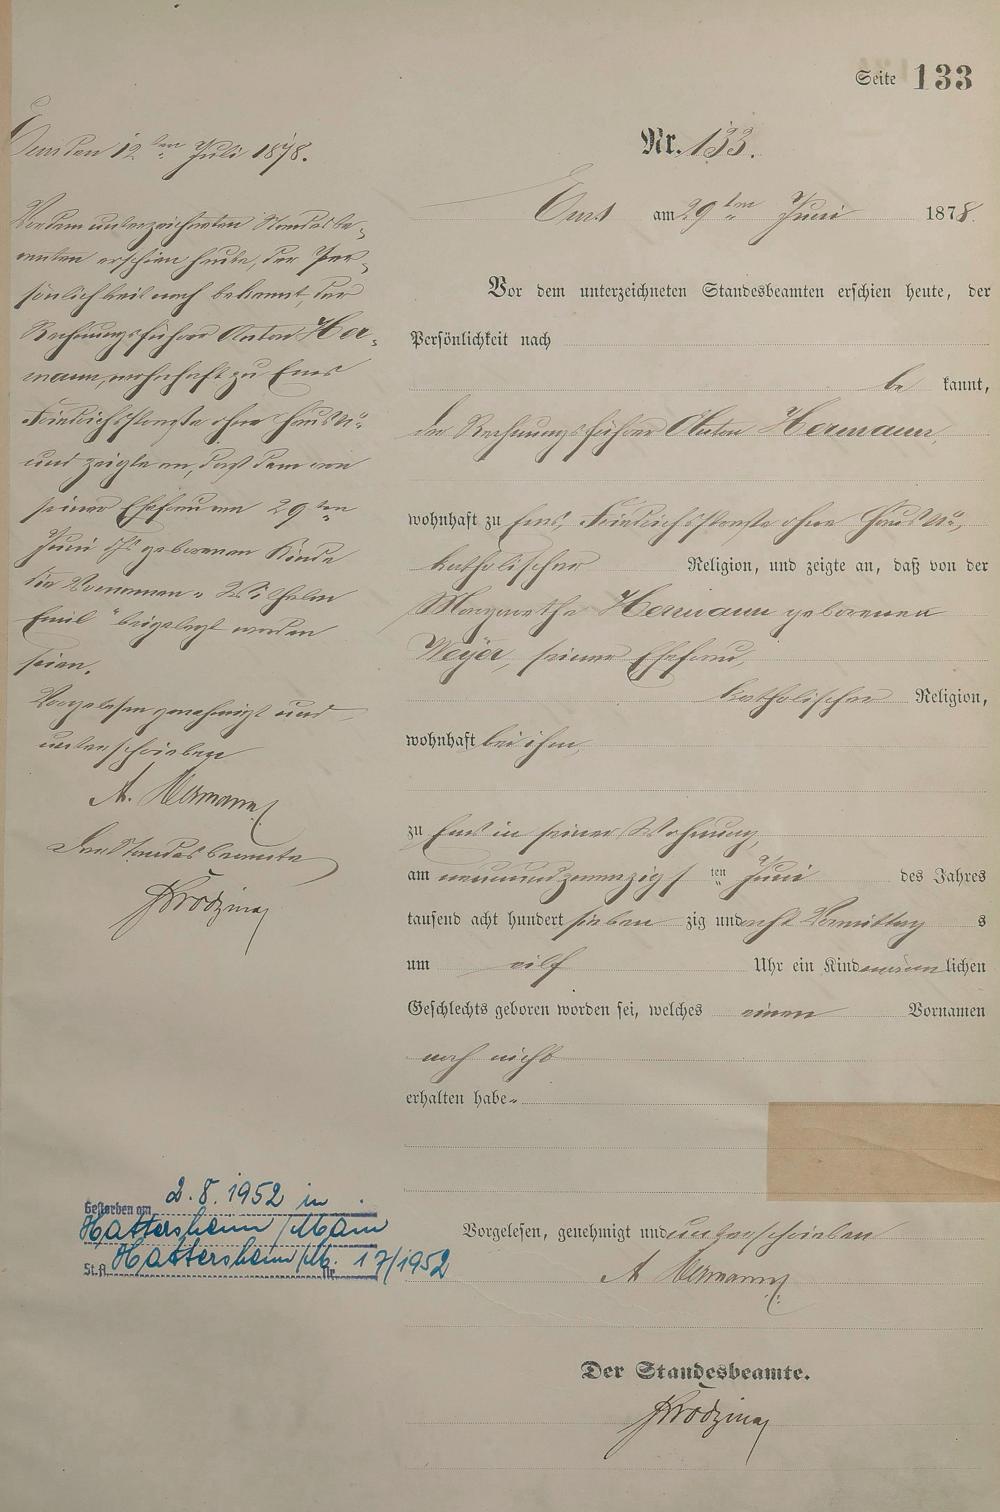 Seite 133
Nr. 133.
Ems am 29ten Juni 1878.
Vor dem unterzeichneten Standesbeamten erschien heute, der
Persönlichkeit nach
be kannt,
der Rechnungsführer Anton Hermann,
wohnhaft zu Ems, Friedrichsstraße ohne Haus No,
katholischer Religion, und zeigte an, daß von der
Margarethe Hermann geborenen
Weyer, seiner Ehefrau,
katholischer Religion,
wohnhaft bei ihm,
zu Ems in seiner Wohnung,
am neunundzwanzigsten Juni des Jahres
tausend acht hundert sieben zig und acht Vormittags
um eilf Uhr ein Kind männlichen
Geschlechts geboren worden sei, welches einen Vornamen
noch nicht
erhalten habe.
Vorgelesen, genehmigt und unterschrieben
A Hermann
Der Standesbeamte.
Ems den 12ten Juli 1878.
Vor dem unterzeichneten Standesbe-
amten erschien heute, der Per-
sönlichkeit nach bekannt, der
Rechnungsführer Anton Her-
mann, wohnhaft zu Ems
Friedrichsstraße ohne Haus No
und zeigte an, daß dem von
seiner Ehefrau am 29ten
Juni dJs geborenen Kinde
die Vornamen "Wilhelm
Emil" beigelegt worden
seien.
Vorgelesen genehmigt und
unterschrieben
A. Hermann
Der Standesbeamte
Gestorben am 2.8.1952 in
Hattersheim/Main
St.A. Hattersheim/M. Nr. 17/1952